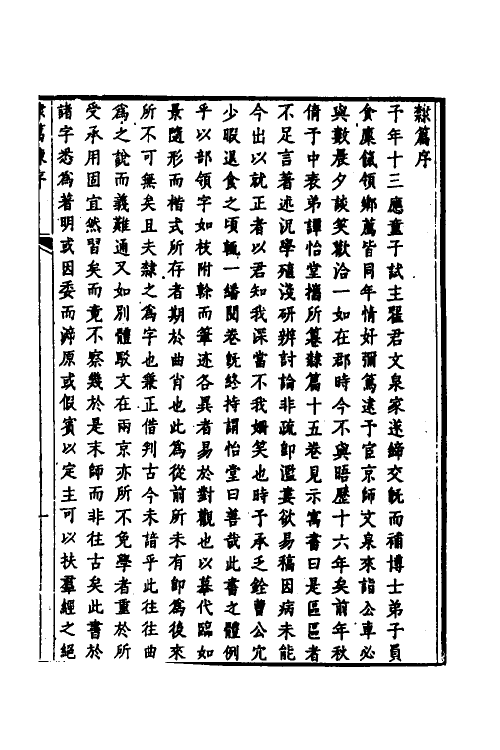 隸篇序
予年十三應童子試主翟君文泉家遂締交旣而補博士弟子員
食廩餼領鄉薦皆同年情好彌篤逮予官京師文泉來詣公車必
與數晨夕談笑歡洽一如在郡時今不與晤歷十六年矣前年秋
倩予中表弟譚怡堂攜所纂隸篇十五卷見示寓書曰是區區者
不足言著述沉學殖淺研辨討論非疏卽濫婁欲易稿因病未能
今出以就正者以君知我深當不我姍笑也時予承乏銓曹公宂
少暇退食之頃輒一繙閱卷旣終持謂怡堂曰善哉此書之體例
乎以部領字如枝附榦而筆迹各異者易於對觀也以摹代臨如
景隨形而楷式所存者期於曲肖也此爲從前所未有卽爲後來
所不可無矣且夫隸之爲字也兼正借判古今未諳乎此往往曲
爲之說而義難通又如別體駁文在兩京亦所不免學者重於所
受承用固宜然習矣而竟不察幾於是末師而非往古矣此書於
諸字悉爲著明或因委而泝原或假賓以定主可以扶羣經之絕